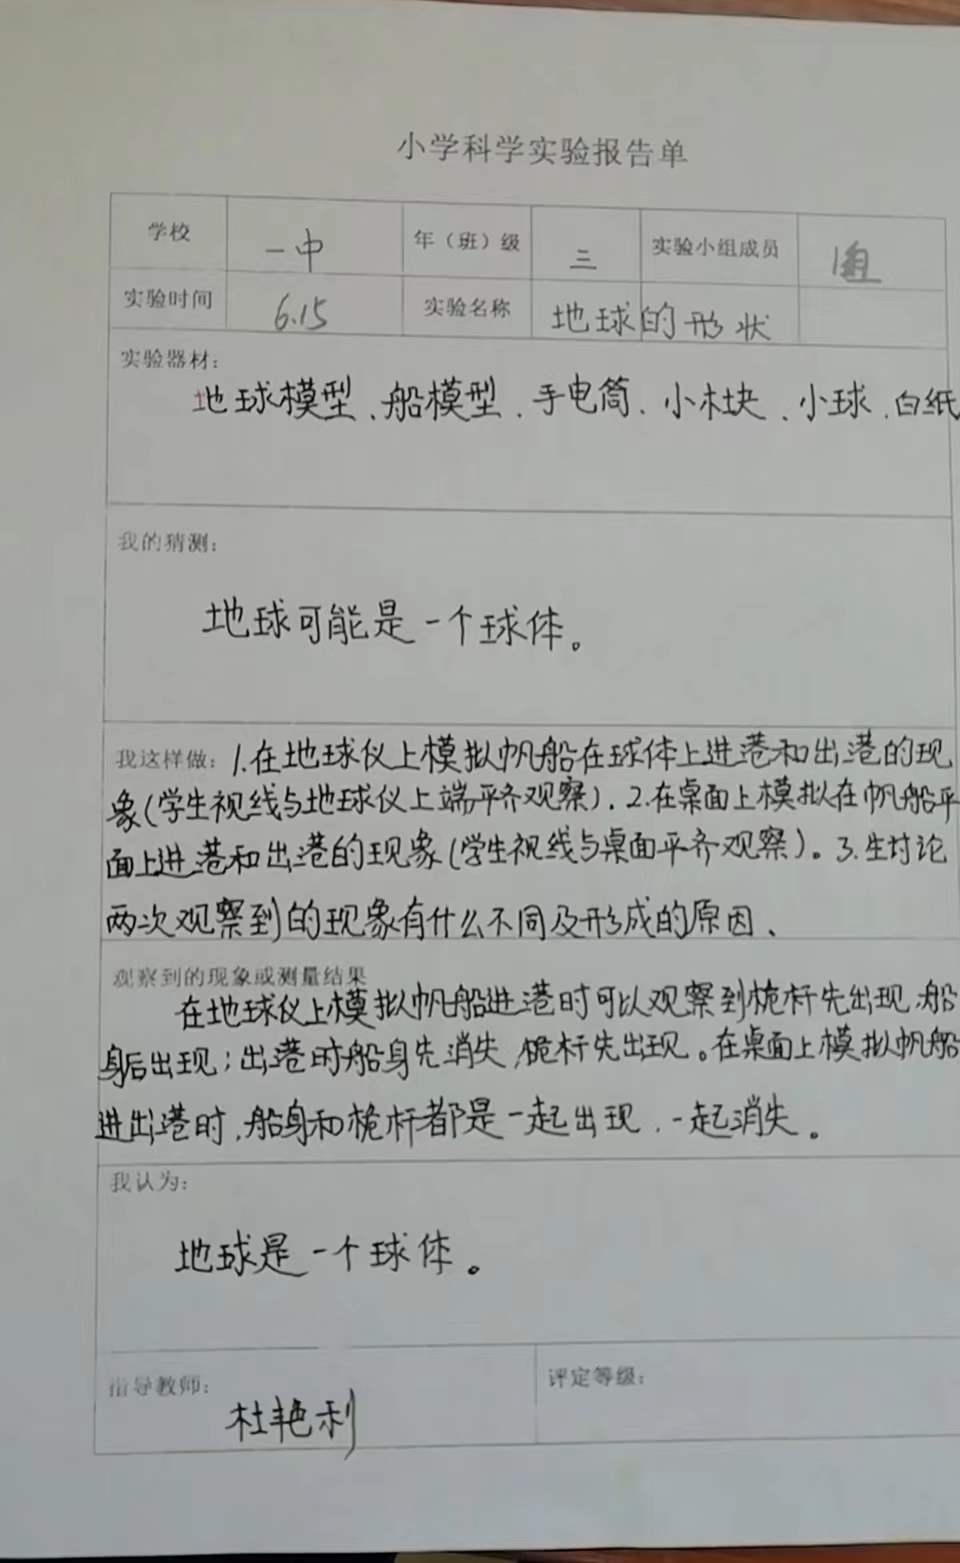 小学科学实验报告单
学校 一中 年（班）级 三 实验小组成员 1组
实验时间 6.15 实验名称 地球的形状
实验器材：
地球模型、船模型、手电筒、小木块、小球、白纸
我的猜测：
地球可能是一个球体。
我这样做：1.在地球仪上模拟帆船在球体上进港和出港的现
象（学生视线与地球仪上端平齐观察）．2.在桌面上模拟在帆船平
面上进港和出港的现象（学生视线与桌面平齐观察）。3.生讨论
两次观察到的现象有什么不同及形成的原因、
观察到的现象或测量结果
在地球仪上模拟帆船进港时可以观察到桅杆先出现，船
身后出现；出港时船身先消失，桅杆先出现。在桌面上模拟帆船
进出港时，船身和桅杆都是一起出现，一起消失。
我认为：
地球是一个球体。
指导教师： 杜艳利 评定等级：